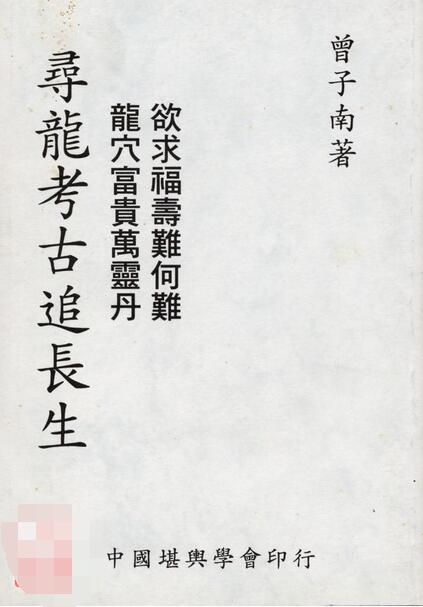 曾子南著
欲求福壽難何難
龍穴富貴萬靈丹
尋龍考古追長生
中國堪輿學會印行